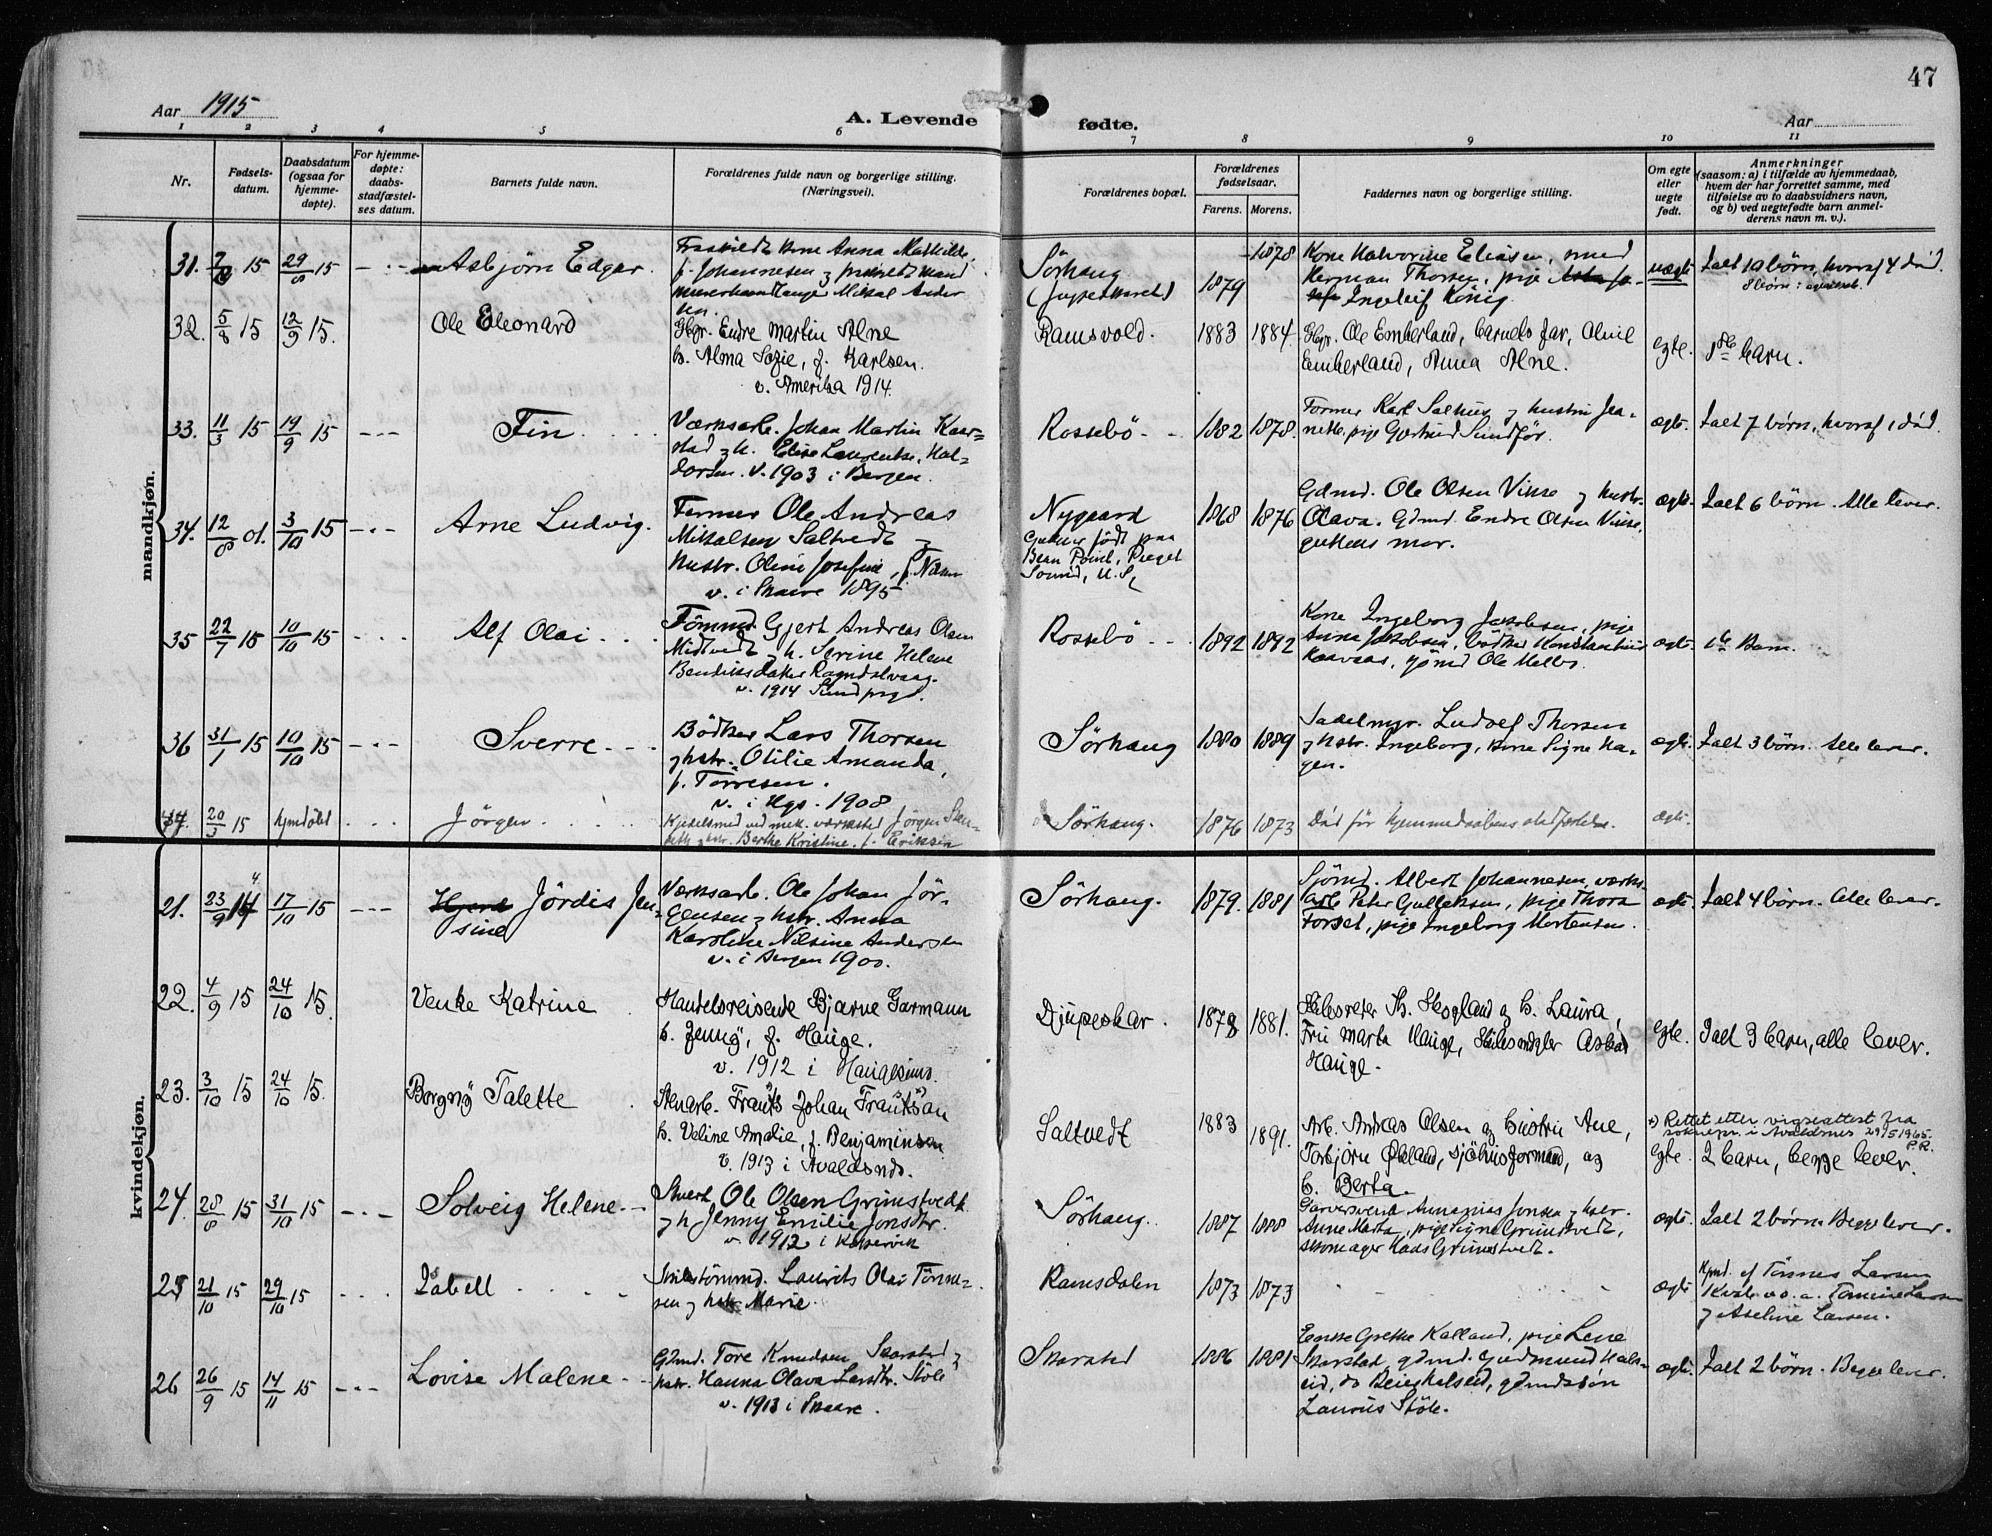 47
Aar 1915
A. Levende fødte.
Aar
1 2 3 4 5 6 7 8 9 10 11
Nr.
Fødsels-
datum.
Daabsdatum
(ogsaa for
hjemme-
døpte).
For hjemme-
døpte:
daabs-
stadfæstel-
ses datum.
Barnets fulde navn.
Forældrenes fulde navn og borgerlige stilling.
(Næringsvei).
Forældrenes bopæl.
Forældrenes
fødselsaar.
Farens. Morens.
Faddernes navn og borgerlige stilling.
Om egte
eller
uegte
født.
Anmerkninger
(saasom: a) i tilfælde av hjemmedaab,
hvem der har forrettet samme, med
tilføielse av to daabsvidners navn,
og b) ved uegtefødte barn anmel-
derens navn m. v.).
mandkjøn.
31. 15 29/8 15 Asbjørn Edgar.
Fraskildt kone Anna Mathilde,
f. Johannesen og fraskilt mand
Mikal Ander
sen.
Sørhaug
1879 1878
Kone Halvorine Eliasen, smed
Herman Thorsen, pige
Ingeleif König.
uægte
Ialt 10 børn, hvoraf 4 død.
32. 5/8 15 12/9 15. Ole Eleonard
Hgr. Endre Martin Alne
h. Alma Sofie, f. Karlsen.
v. Amerika 1914.
Ramsvold. 1883 1884.
Hgr. Ole Emberland, barnets far, Olvil
Emberland, Anna Alne.
egte. 1ste barn.
33. 11/3 15 19/9 15 Fin
Værksarb. Johan Martin Kaar-
stad og h. Elise Laurentse, Hal-
dorsen. v. 1903 i Bergen.
Rossebø 1882 1878.
Former Karl Salhus og hustru Jea-
nette, pige Gertrud Sundfør.
ægte. Ialt 7 børn, hvoraf 1 død.
34. 12/8 d. 3/10 15 Arne Ludvig.
Farmer Ole Andreas
Mikalsen Saltvedt og
hustr. Oline Josefine, f. Næss
v. i Skaare 1895
Nygaard
Gutten født paa
Bean Point, Puget
Sound, U. S.
1868 1876
Gdmd. Ole Olsen Vikse og hustr.
Olava. Gdmd. Endre Olsen Vikse,
guttens mor.
ægte. Ialt 6 børn. Alle lever.
35 22/7 15 10/10 15 Alf Olai
Tømmd. Gjert Andreas Olsen
Midtvedt og h. Serine Helene
Bendiksdatter
v. 1914
Rossebø 1892 1892
Kone Ingeborg Jakobsen, pige
Anna Jakobsen, bødker Konstantius
sjømd Ole Melbø.
ægte. 1ste Barn.
36 31/7 15 10/10 15 Sverre
Bødker Lars Thorsen
og hstr. Otilie Amanda,
f. Tørresen.
v. i Hgs. 1908
Sørhaug 1880 1889
Sadelmgr. Ludolf Thorsen
og hstr. Ingeborg, kone Signe Ha-
gen.
ægte. Ialt 3 børn. Alle lever.
37. 20/3 15 hjemdøbt Jørgen
Kjedelsmed ved mek. værksted Jørgen
Berthe Kristine, f. Eriksen
Sørhaug. 1876 1873
Død før hjemmedaabens stadfæstelse. ægte.
kvindekjøn.
21. 23/9 14 17/10 15 Jørdis Jen-
sine
Værksarb. Ole Johan Jør-
gensen og hstr. Anna
Karoline Nilsine Andersen
v. i Bergen 1900.
Sørhaug. 1879. 1881
Sjømd. Albert Johannesen, værks-
arb. Peter Gulleksen, pige Thora
Forset, pige Ingeborg Mortensen.
ægte. Ialt 4 børn. Alle lever.
22. 4/9 15 24/10 15. Venke Katrine
Handelsreisende Bjarne Garmann
h. Jenny, f. Hauge.
v. 1912 i Haugesund.
Djupeskar. 1878 1881.
Th. Skogland og h. Laura,
Fru Marta Hauge,
Hauge.
egte. Ialt 3 barn, alle lever.
23. 3/10 15 24/10 15. Borgny Talette
Stenarb. Frants Johan Frantsan
h. Veline Amalie, f. Benjaminsen
v. 1913 i Avaldsnes.
Saltvedt 1883 1891.
Arb. Andreas Olsen og hustru Ane,
Torbjørn Økland, sjøhusformand, og
h. Berta.
x) Rettet etter vigselattest fra
sokn i Avaldsnes 29/5 1965.
P.R.
egte. 2 barn, begge lever.
24. 28/8 15 31/10 15 Solveig Helene
Ole Olsen Grimstvedt
og h Jenny Emilie Jonsdtr.
v. 1912 i Kopervik
Sørhaug. 1887 1888
Garversvend Annanias Jonsen og hstr.
Anne Marta, pige Signe Grimstvedt,
skomager Mads Grimstvedt.
ægte. Ialt 2 børn Begge lever.
25 21/10 15 29/10 15 Isabell
Laurits Olai Tønne-
sen og hstr Marie.
Ramsdalen 1873 1873
ægte
Hjmd. af Tønnes Larsen
Kvale o. a. Tomine Larsen
og Aseline Larsen.
26 26/9 15 14/11 15 Lovise Malene
Gdmd. Tore Knudsen Skarstad og
hstr. Hanna Olava Larsdtr. Støle
v. 1913 i Skaare.
Skarstad 1886 1881
Enke Grethe Kalland, pige Lene
Skarstad, gdmd. Gudmund Hals-
eid, do Halseid, gdmdssøn
Laurits Støle.
ægte. Ialt 2 børn. Begge lever.